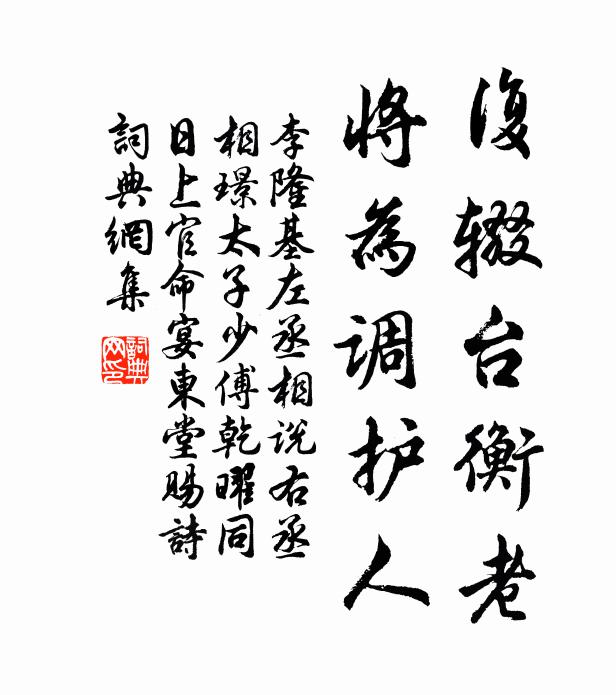 復辍台衡老
将為调护人
李隆基左丞相说右丞
相璟太子少傅乾曜同
日上官命宴東堂賜詩
詞典網集
詞典网印